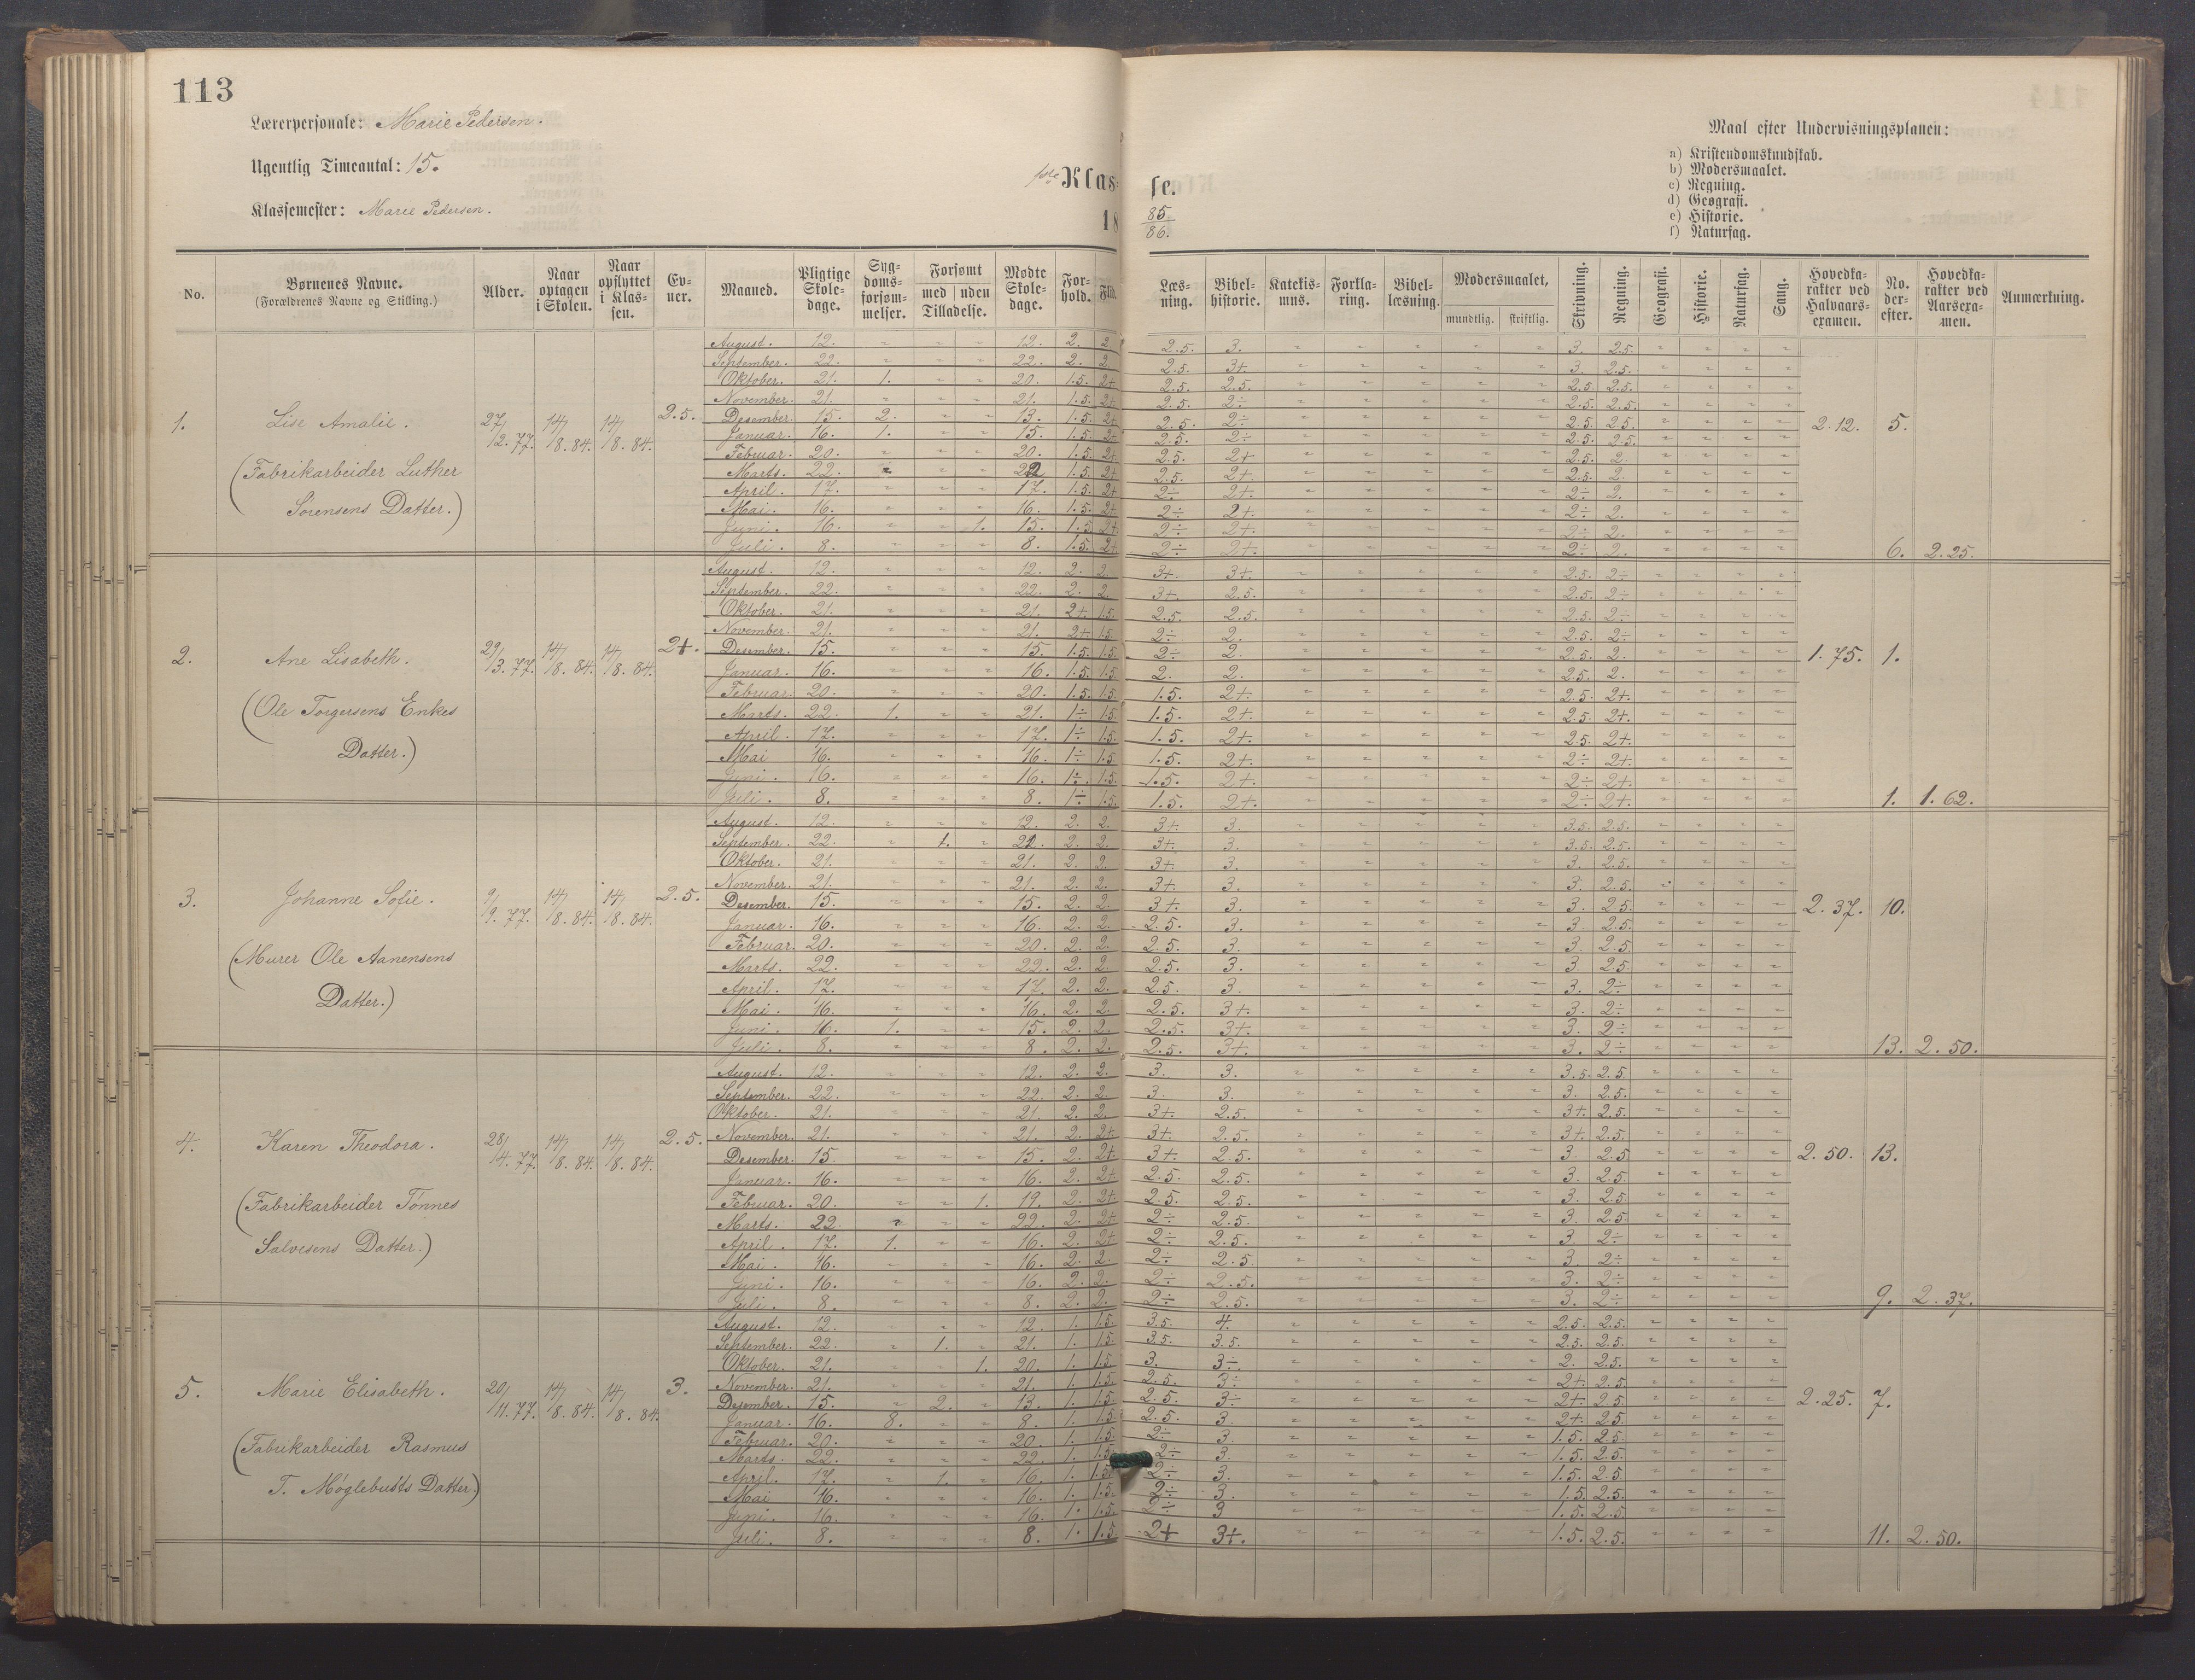 113
Lærerpersonale: Marie Pedersen.
Ugentlig Timeantal: 15.
Klassemester: Marie Pedersen.
1ste Klasse.
18 85/86.
Maal efter Undervisningsplanen:
a) Kristendomskundskab.
b) Modersmaalet.
c) Regning.
d) Geografi.
e) Historie.
f) Naturfag.
No. | Børnenes Navne. (Forældrenes Navne og Stilling.) | Alder. | Naar optagen i Skolen. | Naar opflyttet i Klassen. | Evner. | Maaned. | Pligtige Skoledage. | Sygdomsforsømmelser. | Forsømt med Tilladelse. | uden Tilladelse. | Mødte Skoledage. | Forhold. | Flid. | Læsning. | Bibelhistorie. | Katekismus. | Forklaring. | Bibellæsning. | Modersmaalet, mundtlig. | skriftlig. | Skrivning. | Regning. | Geografi. | Historie. | Naturfag. | Sang. | Hovedkarakter ved Halvaarsexamen. | No. derefter. | Hovedkarakter ved Aarsexamen. | Anmærkning.
1. Lise Amalie. 27/12. 77. 14/8. 84. 14/8. 84. 2.5. 2.12. 5.
(Fabrikarbeider Luther
Sørensens Datter.)
August. 12. " " " 12. 2. 2. 2.5. 3. " " " " " 3. 2.5. " " " "
September. 22. " " " 22. 2. 2. 2.5. 3+. " " " " " 3. 2.5. " " " "
Oktober. 21. 1. " " 20. 1.5. 2+ 2.5. 2.5. " " " " " 2.5. 2.5. " " " "
November. 21. " " " 21. 1.5. 2+ 2.5. 2÷ " " " " " 2.5. 2.5. " " " "
Desember. 15. 2. " " 13. 1.5. 2+ 2.5. 2÷ " " " " " 2.5. 2.5. " " " "
Januar. 16. 1. " " 15. 1.5. 2+ 2.5. 2÷ " " " " " 2.5. 2.5. " " " "
Februar. 20. " " " 20. 1.5. 2+ 2.5. 2+ " " " " " 2.5. 2. " " " "
Marts. 22. " " " 22 1.5. 2+ 2.5. 2+. " " " " " 2.5. 2. " " " "
April. 17. " " " 17. 1.5. 2+ 2÷ 2+. " " " " " 2÷ 2. " " " "
Mai. 16. " " " 16. 1.5. 2+ 2÷ 2+. " " " " " 2÷ 2. " " " "
Juni. 16. " " 1. 15. 1.5. 2+. 2÷ 2+. " " " " " 2÷ 2. " " " "
Juli. 8. " " " 8. 1.5. 2+. 2÷ 2+. " " " " " 2÷ 2. " " " " 6. 2.25.
2. Ane Lisabeth. 29/3. 77. 14/8. 84. 14/8. 84. 2+. 1.75. 1.
(Ole Torgersens Enkes
Datter.)
August. 12. " " " 12. 2. 2. 3+. 3+. " " " " " 2.5. 2÷ " " " "
September. 22. " " " 22. 2. 2. 3+. 2.5. " " " " " 2.5. 2÷ " " " "
Oktober. 21. " " " 21. 2+ 1.5. 2.5. 2.5. " " " " " 2.5. 2÷ " " " "
November. 21. " " " 21. 2+ 1.5. 2÷ 2. " " " " " 2.5. 2÷ " " " "
Desember. 15. " " " 15. 1.5. 1.5. 2÷ 2. " " " " " 2.5. 2. " " " "
Januar. 16. " " " 16. 1.5. 1.5. 2. 2. " " " " " 2.5. 2. " " " "
Februar. 20. " " " 20. 1.5. 1.5. 1.5. 2+. " " " " " 2.5. 2+. " " " "
Marts. 22. 1. " " 21. 1÷ 1.5. 1.5. 2+. " " " " " 2.5. 2+. " " " "
April. 17. " " " 17. 1÷ 1.5. 1.5. 2+. " " " " " 2.5. 2+. " " " "
Mai 16. " " " 16. 1÷ 1.5 1.5. 2+. " " " " " 2÷ 2+. " " " "
Juni. 16. " " " 16. 1÷. 1.5. 1.5. 2+. " " " " " 2÷ 2+. " " " "
Juli. 8. " " " 8. 1÷ 1.5. 1.5. 2+. " " " " " 2÷ 2+. " " " " 1. 1.62.
3. Johanne Sofie. 9/9. 77. 14/8. 84. 14/8. 84. 2.5. 2.37. 10.
(Murer Ole Aanensens
Datter.)
August. 12. " " " 12. 2. 2. 3+. 3. " " " " " 3.5. 2.5. " " " "
September. 22. " 1. " 21. 2. 2. 3+. 3. " " " " " 3.5. 2.5. " " " "
Oktober. 21. " " " 21. 2. 2. 3+. 3. " " " " " 3. 2.5. " " " "
November. 21. " " " 21. 2. 2. 3+. 3. " " " " " 3. 2.5. " " " "
Desember. 15. " " " 15. 2. 2. 3+. 3. " " " " " 3. 2.5. " " " "
Januar. 16. " " " 16. 2. 2. 2.5. 3. " " " " " 3. 2.5. " " " "
Februar. 20. " " " 20. 2. 2. 2.5. 3. " " " " " 3. 2.5. " " " "
Marts. 22. " " " 22. 2. 2. 2.5. 3. " " " " " 3. 2.5. " " " "
April. 17. " " " 17. 2. 2. 2.5. 3. " " " " " 3. 2÷ " " " "
Mai. 16. " " " 16. 2. 2. 2.5. 3+. " " " " " 3. 2÷ " " " "
Juni. 16. 1. " " 15. 2. 2. 2.5. 3+. " " " " " 3. 2÷ " " " "
Juli. 8. " " " 8. 2. 2. 2.5. 3+. " " " " " 3. 2÷ " " " " 13. 2.50.
4. Karen Theodora. 28/4. 77. 14/8. 84. 14/8. 84. 2.5. 2.50. 13.
(Fabrikarbeider Tønnes
Salvesens Datter.)
August. 12. " " " 12. 2. 2. 3. 3. " " " " " 3.5. 2.5. " " " "
September. 22. " " " 22. 2. 2. 3. 3. " " " " " 3. 2.5. " " " "
Oktober. 21. " " " 21. 2. 2. 3+. 2.5. " " " " " 3+. 2.5. " " " "
November. 21. " " " 21. 2. 2+ 3+. 2.5. " " " " " 3+. 2.5. " " " "
Desember. 15. " " " 15. 2. 2+ 3+. 2.5. " " " " " 3. 2.5. " " " "
Januar. 16. " " " 16. 2. 2+ 2.5. 2.5. " " " " " 3. 2.5. " " " "
Februar. 20. " " 1. 19. 2. 2+ 2.5. 2.5. " " " " " 3. 2.5. " " " "
Marts. 22. " " " 22. 2. 2+ 2÷ 2.5. " " " " " 3. 2.5. " " " "
April. 17. 1. " " 16. 2. 2+ 2÷ 2.5. " " " " " 3. 2÷ " " " "
Mai. 16. " " " 16. 2. 2. 2÷ 2.5. " " " " " 3. 2÷ " " " "
Juni. 16. " " " 16. 2. 2. 2÷ 2.5. " " " " " 3. 2÷ " " " "
Juli. 8. " " " 8. 2. 2. 2÷ 2.5. " " " " " 3. 2÷ " " " " 9. 2.37.
5. Marie Elisabeth. 20/11. 77. 14/8. 84. 14/8. 84. 3. 2.25. 7.
(Fabrikarbeider Rasmus
T. Møglebusts Datter.)
August. 12. " " " 12. 1. 1.5. 3.5. 4. " " " " " 2.5. 2.5. " " " "
September. 22. " 1. " 21. 1. 1.5. 3.5. 3.5. " " " " " 2.5. 2.5. " " " "
Oktober. 21. " " 1. 20. 1. 1.5. 3. 3÷. " " " " " 2. 2.5. " " " "
November. 21. " " " 21. 1. 1.5. 2.5. 3÷ " " " " " 2+. 2.5. " " " "
Desember. 15. " 2. " 13. 1. 1.5. 2.5. 3÷ " " " " " 2+. 2.5. " " " "
Januar. 16. 8. " " 8. 1. 1.5. 2.5. 3. " " " " " 2+. 2.5. " " " "
Februar. 20. " " " 20. 1. 1.5. 2÷ 3. " " " " " 1.5. 2.5. " " " "
Marts. 22. " " " 22. 1. 1.5. 2÷ 3. " " " " " 1.5. 2.5. " " " "
April. 17. " 1. " 16. 1. 1.5. 2÷ 3. " " " " " 1.5. 2.5. " " " "
Mai 16. " " " 16. 1. 1.5. 2÷ 3. " " " " " 1.5. 2.5. " " " "
Juni. 16. " " " 16. 1. 1.5. 2÷ 3 " " " " " 1.5. 2.5. " " " "
Juli. 8. " " " 8. 1. 1.5. 2+ 3+. " " " " " 1.5. 2.5. " " " " 11. 2.50.